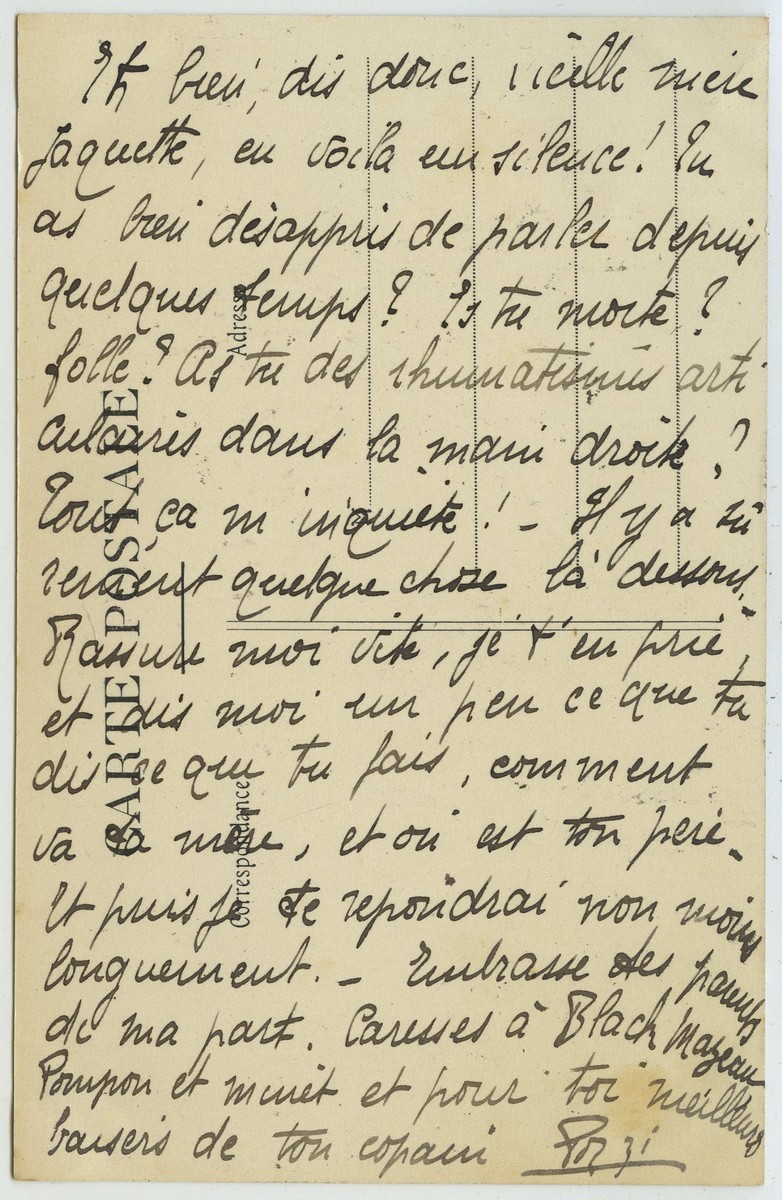 Eh bien, dis donc, vieille mère
Jaquette, en voilà un silence! Tu
as bien désappris de parler depuis
quelques temps? Es tu morte?
folle? As tu des rhumatismes arti
culaires dans la main droite?
Tout ça m'inquiète! - Il y a sû
rement quelque chose là dessous.-
Rassure moi vite, je t'en prie,
et dis moi un peu ce que tu
dis ce que tu fais, comment
va ta mère, et où est ton père -
Et puis je te répondrai non moins
longuement. - Embrasse tes parents
de ma part. Caresses à Black Mazeau
Pompon et minet et pour toi meilleurs
baisers de ton copain Pozzi
CARTE POSTALE
Correspondance
Adresse